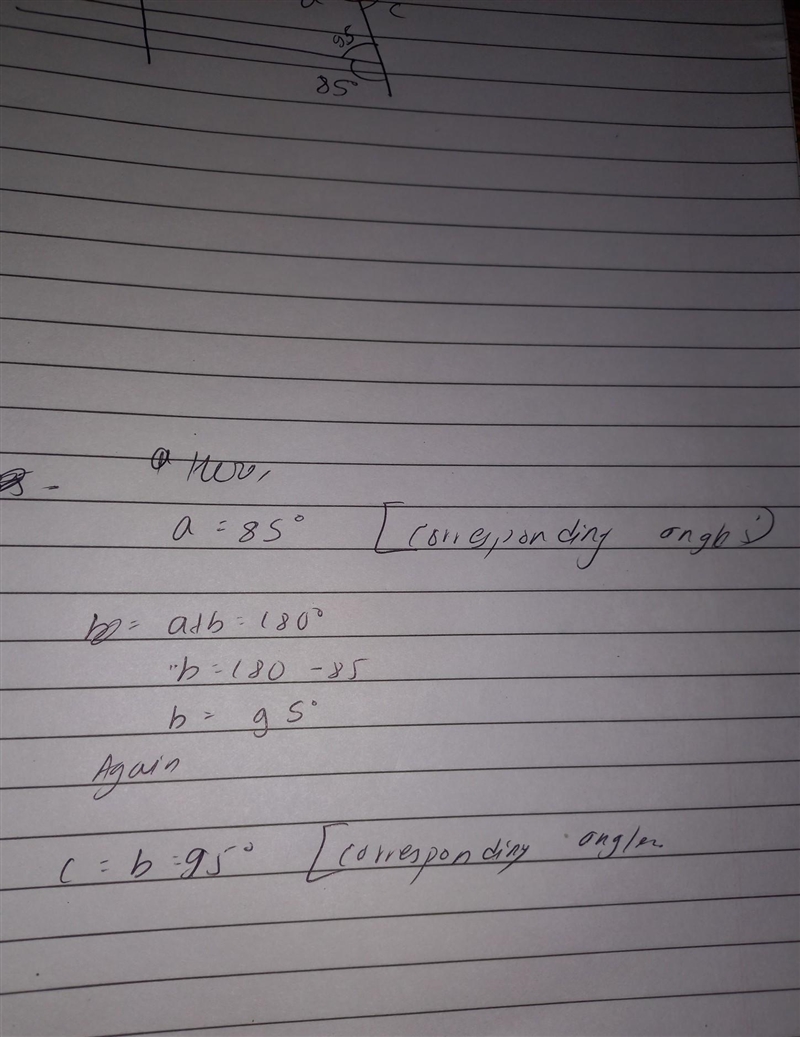 a c
95
85°
Here,
a = 85° [corresponding angles)
b = a+b = 180°
b = 180 - 85
b = 95°
Again
c = b = 95° [corresponding angles